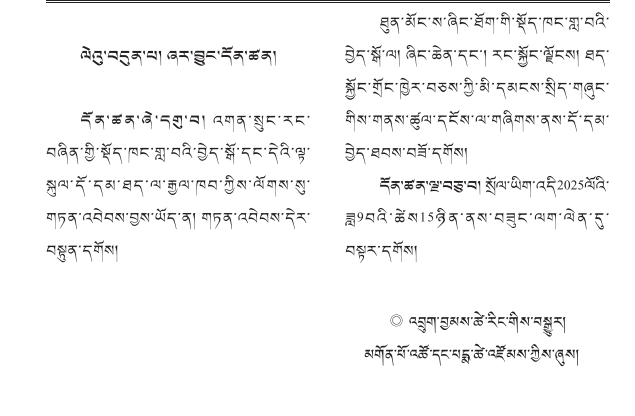 ལེའུ་བདུན་པ། ཞར་བྱུང་དོན་ཚན།
དོན་ཚན་ཞེ་དགུ་བ། འགན་སྲུང་རང་
བཞིན་གྱི་སྡོད་ཁང་གླ་བའི་བྱེད་སྒོ་དང་དེའི་ལྟ་
སྐུལ་དོ་དམ་ཐད་ལ་རྒྱལ་ཁབ་ཀྱིས་ལོགས་སུ་
གཏན་འབེབས་བྱས་ཡོད་ན། གཏན་འབེབས་དེར་
བསྟུན་དགོས།
ཐུན་མོང་ས་ཞིང་ཐོག་གི་སྡོད་ཁང་གླ་བའི་
བྱེད་སྒོ་ལ། ཞིང་ཆེན་དང་། རང་སྐྱོང་ལྗོངས། ཐད་
སྐྱོང་གྲོང་ཁྱེར་བཅས་ཀྱི་མི་དམངས་སྲིད་གཞུང་
གིས་གནས་ཚུལ་དངོས་ལ་གཞིགས་ནས་དོ་དམ་
བྱེད་ཐབས་བཟོ་དགོས།
དོན་ཚན་ལྔ་བཅུ་བ། སྲོལ་ཡིག་འདི2025ལོའི་
ཟླ9བའི་ཚེས15ཉིན་ནས་བཟུང་ལག་ལེན་དུ་
བསྟར་དགོས།
◎ འབྲུག་བྱམས་ཚེ་རིང་གིས་བསྒྱུར།
མགོན་པོ་འཚོ་དང་པདྨ་ཚེ་འཛོམས་ཀྱིས་ཞུས།